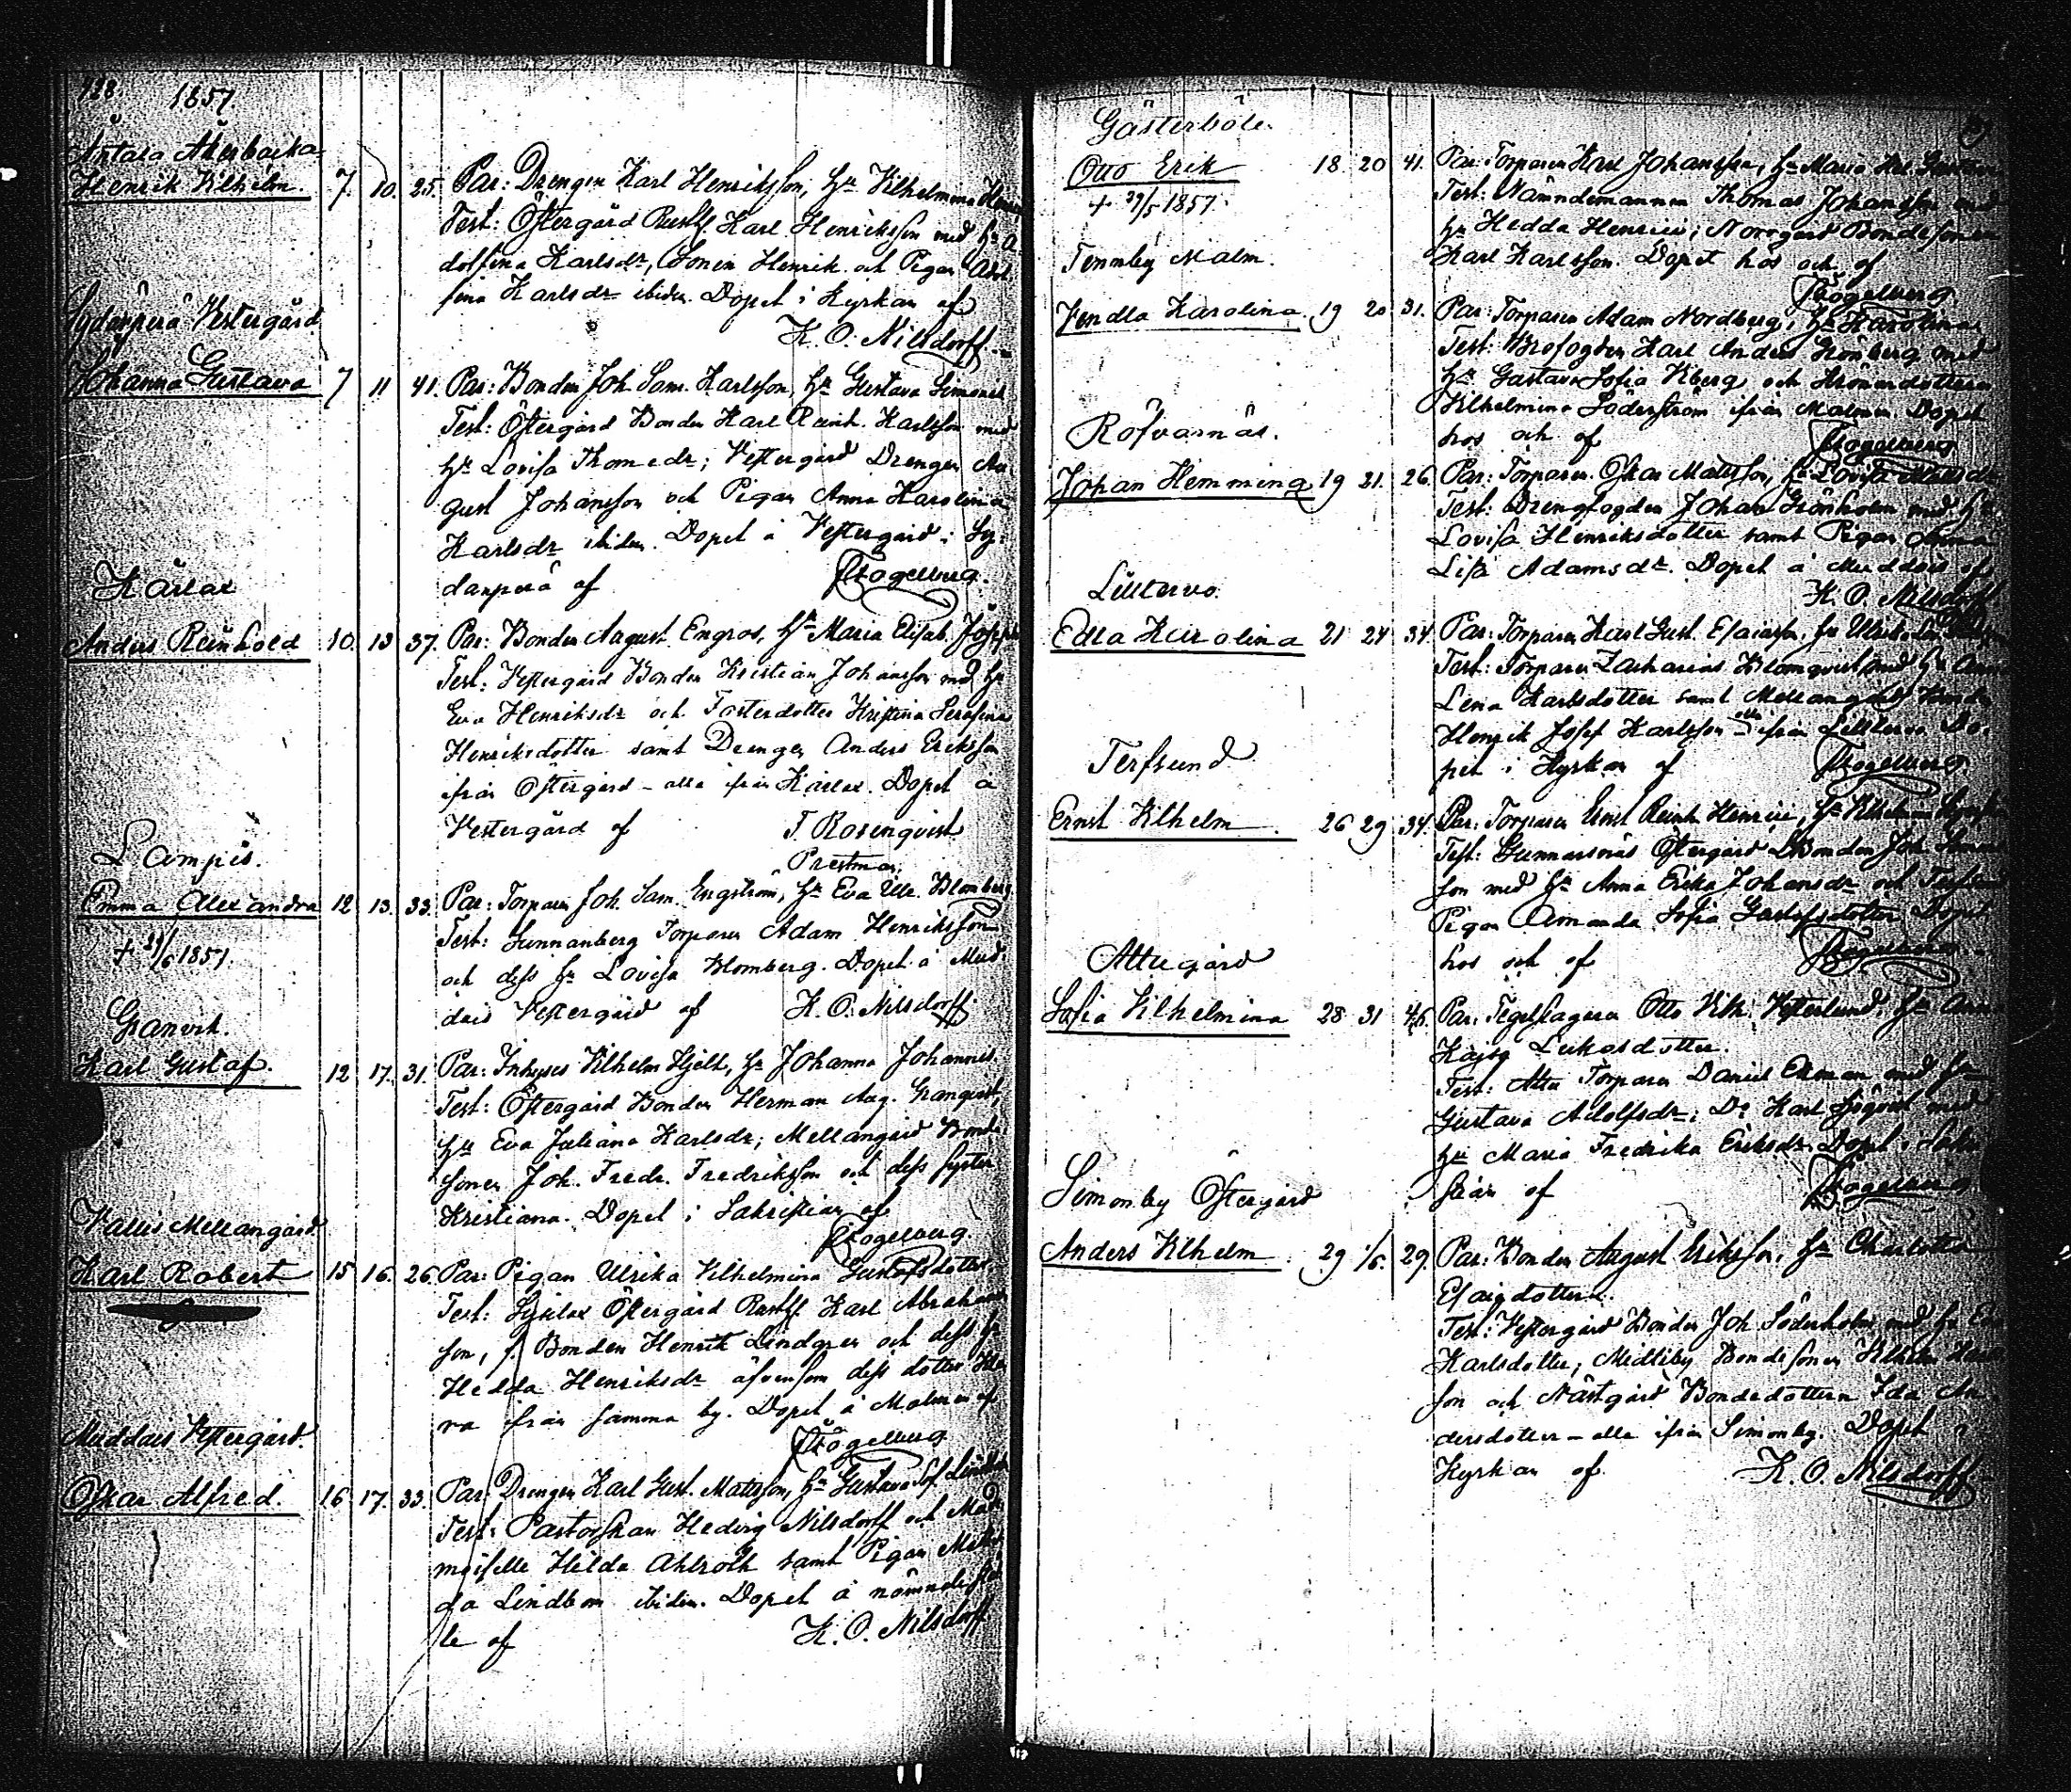 1857
Henrik Vilhelm. 7. 10. 25. Par: Drengen Karl Henriksson, Hu Vilhelmina
Test: Östergård Rustl. Karl Henriksson med Hu A
dolfina Karlsdr, Sonen Henrik och Pigan
fina Karlsdr ibidem. Dopet i Kyrkan af
K. O. Nilsdorff
Sydänperä Vestergård
Johanna Gustava 7 11 41. Par: Bonden Joh. Sam. Karlsson, Hu Gustava Simonsd
Test: Östergård Bonden Karl Reinh. Karlsson med
Hu Lovisa Thomædr; Vestergård Drengen Au
gust Johansson och Pigan Anna Karolina
Karlsdr ibidem. Dopet å Vestergård i Sy
danperä af Fogelberg.
Kärlax
Anders Reinhold 10. 13 37. Par: Bonden August Engros, Hu Maria Elisab.
Test: Vestergård Bonden Kristian Johansson med Hu
Eva Henriksdr och Fosterdotter Kristina Serafina
Henriksdotter samt Drengen Anders Eriksson
ifrån Östergård - alla ifrån Kärlax. Dopet å
Vestergård af T. Rosenqvist
Prestman.
Lampis.
Emma Alexandra 12 13. 33. Par: Torparen Joh. Sam. Engström, Hu Eva Ulr. Blomberg
Test: Sunnanberg Torparen Adam Henriksson
† 29/6 1857.
och dess Hu Lovisa Blomberg. Dopet å Mud
dais Vestergård af K. O. Nilsdorff
Granvik.
Karl Gustaf. 12 17. 31. Par: Inhyses Vilhelm Hjelt, Hu Johanna Johannis.
Test: Östergård Bonden Herman Aug. Granqvist,
Hu Eva Juliana Karlsdr; Mellangård Bonde
sonen Joh. Fredr. Fredriksson och dess syster
Kristiana. Dopet i Sakristian af
Fogelberg
Vallis Mellangård
Karl Robert 15 16. 26. Par: Pigan Ulrika Vilhelmina Gustafsdotter
Test: Östergård Rustl. Karl Abraham
son, f. Bonden Henrik Lindgren och dess Hu
Hedda Henriksdr äfvensom dess dotter
ra ifrån samma by. Dopet å Malmen af
Fogelberg
Muddais Vestergård.
Oskar Alfred. 16. 17. 33. Par: Drengen Karl Gust. Mattsson, Hu Gustava Sof.
Test: Pastorskan Hedvig Nilsdorff och Made
moiselle Hilda Ahlroth samt Pigan
da Lindbom ibidem. Dopet å nämnde stäl
le af K. O. Nilsdorff
Gästerböle.
Otto Erik 18. 20 41. Par: Torparen Karl Johansson, Hu Maria
† 29/5 1857.
Test: Nämndemannen Thomas Johansson med
Hu Hedda Henrici; Norrgård Bondesonen
Karl Karlsson. Dopet hos och af
Fogelberg
Temmby Malm.
Fendla Karolina. 19 20 31. Par: Torparen Adam Nordberg, Hu Karolina
Test: Brofogden Karl Anders Grönberg med
Hu Gustava Sofia Viberg och
Vilhelmina Söderström ifrån Malmen. Dopet
hos och af Fogelberg
Röfvarnäs.
Johan Hemming 19 21. 26. Par: Torparen Oskar Mattsson, Hu Lovisa
Test: Drengfogden Johan Grönholm med Hu
Lovisa Henriksdotter samt Pigan Anna
Lisa Adamsdr. Dopet å Muddais af
K. O. Nilsdorff
Lilltervo.
Edla Karolina 21 24 34. Par: Torparen Karl Gust. Esaiasson, Hu Ulrika
Test: Torparen Zacharias Blomqvist med Hu Anna
Lena Karlsdotter samt Mellangård Bonden
Henrik Josef Karlsson - alla ifrån Lilltervo. Do
pet i Kyrkan af Fogelberg
Terfsund
Ernst Vilhelm 26 29 34. Par: Torparen Ernst Reinh. Henrici, Hu
Test: Gunnarsnäs Östergård Bonden Joh.
son med Hu Anna Erika Johansdr och
Pigan Amanda Sofia Gustafsdotter. Dopet
hos och af Fogelberg
Attu gård
Sofia Vilhelmina 28 31 46. Par: Tegelslagaren Otto Vilh. Vesterlund, Hu Anna
Kajsa Lukasdotter.
Test: Attu Torparen Daniel Ekman med Hu
Gustava Adolfsdr; Do Karl med
Hu Maria Fredrika Eriksdr. Dopet i Sakri
stian af Fogelberg
Simonby Östergård
Anders Vilhelm 29 1/6. 29. Par: Bonden August Eriksson, Hu Charlotta
Esaiædotter.
Test: Vestergård Bonden Joh. Söderholm med Hu
Karlsdotter; Midtiby Bondesonen Vilhelm
son och Nästgård Bondedottern Ida An
dersdotter - alla ifrån Simonby. Dopet i
Kyrkan af K. O. Nilsdorff